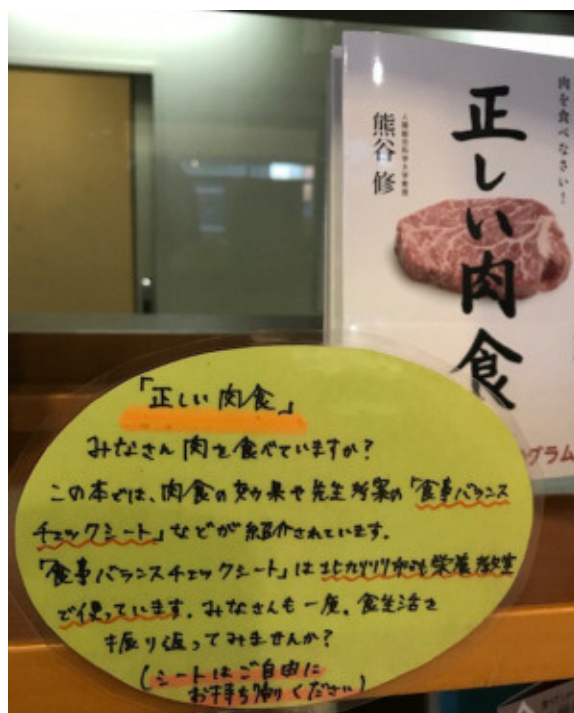 肉を食べなさい!
正しい肉食
人間総合科学大学教授
熊谷 修
グラム
「正しい肉食」
みなさん 肉を食べていますか?
この本では、肉食の効果や先生考案の「食事バランス
チェックシート」などが紹介されています。
「食事バランスチェックシート」は 栄養教室
で使っています。みなさんも一度、食生活を
振り返ってみませんか?
(シートはご自由に
お持ち帰りください)